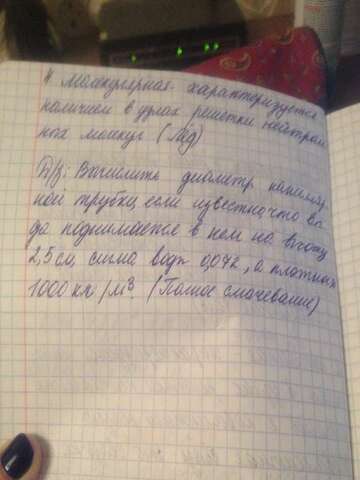 4 молекулярная - характеризуется
наличием в узлах решётки нейтраль
ных молекул (лёд)
Д/з: Вычислить диаметр капилляр
ной трубки, если известно что во
да поднимается в нём на высоту
2,5 см, сигма воды 0,072, а плотность
1000 кг/м³. (Полное смачевание)